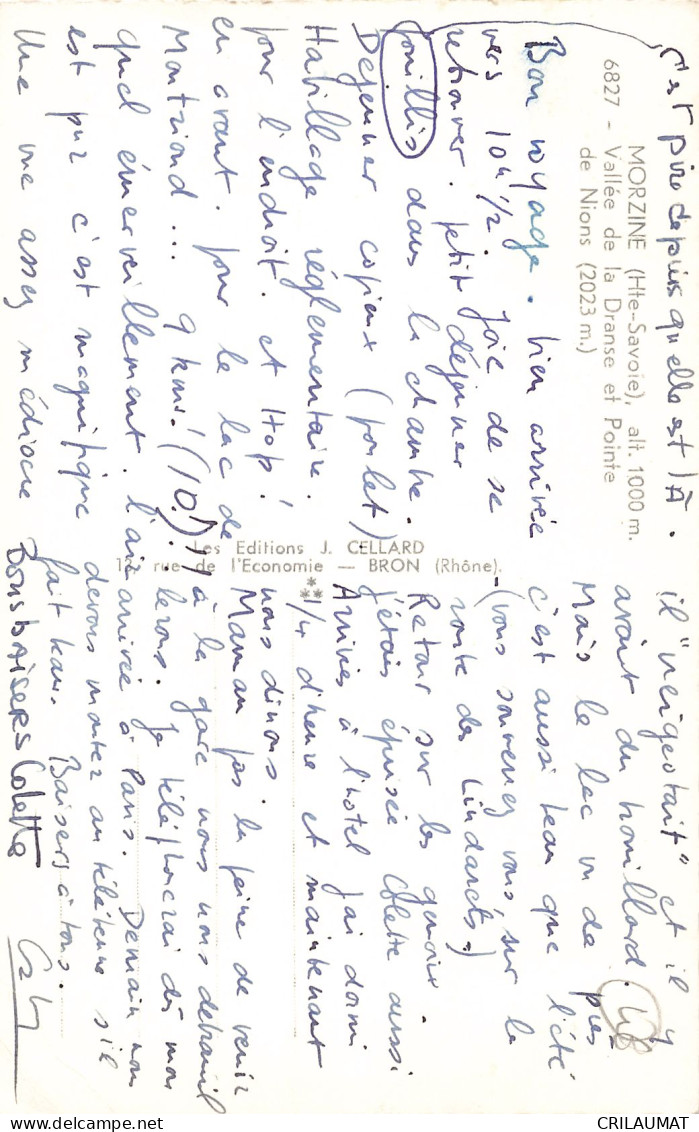 c'est pire depuis qu'elle est là.
MORZINE (Hte-Savoie), alt. 1000 m.
6827 - Vallée de la Dranse et Pointe
de Nions (2023 m.)
Bon voyage. bien arrivée
vers 10h 1/2. Joie de se
retrouver. petit déjeuner
fouillis dans la chambre.
Dejeuner copieux (poulet)
Habillage réglementaire.
pour l'endroit. et Hop!
en avant. pour le lac de
Montriond... 9 kms! (10!)
quel émerveillement. l'air
est pur c'est magnifique
Une vue assez médiocre
Les Editions J. CELLARD
rue de l'Economie — BRON (Rhône).
il "neigeotait" et il y
avait du brouillard.
Mais le lac vu de près
c'est aussi beau que l'été
(vous souvenez vous sur la
route des Lindarets)
Retour sur les genoux.
j'étais épuisée Colette aussi
Arrivés à l'hotel j'ai dormi
1/4 d'heure et maintenant
nous dinons.
Maman pas la peine de venir
à la gare nous nous debrouil
lerons. Je téléphonerai dès mon
arrivée à Paris. Demain nous
devons monter au téléferic s'il
fait beau. Baisers à tous.
BONS BAISERS Colette
CRILAUMAT